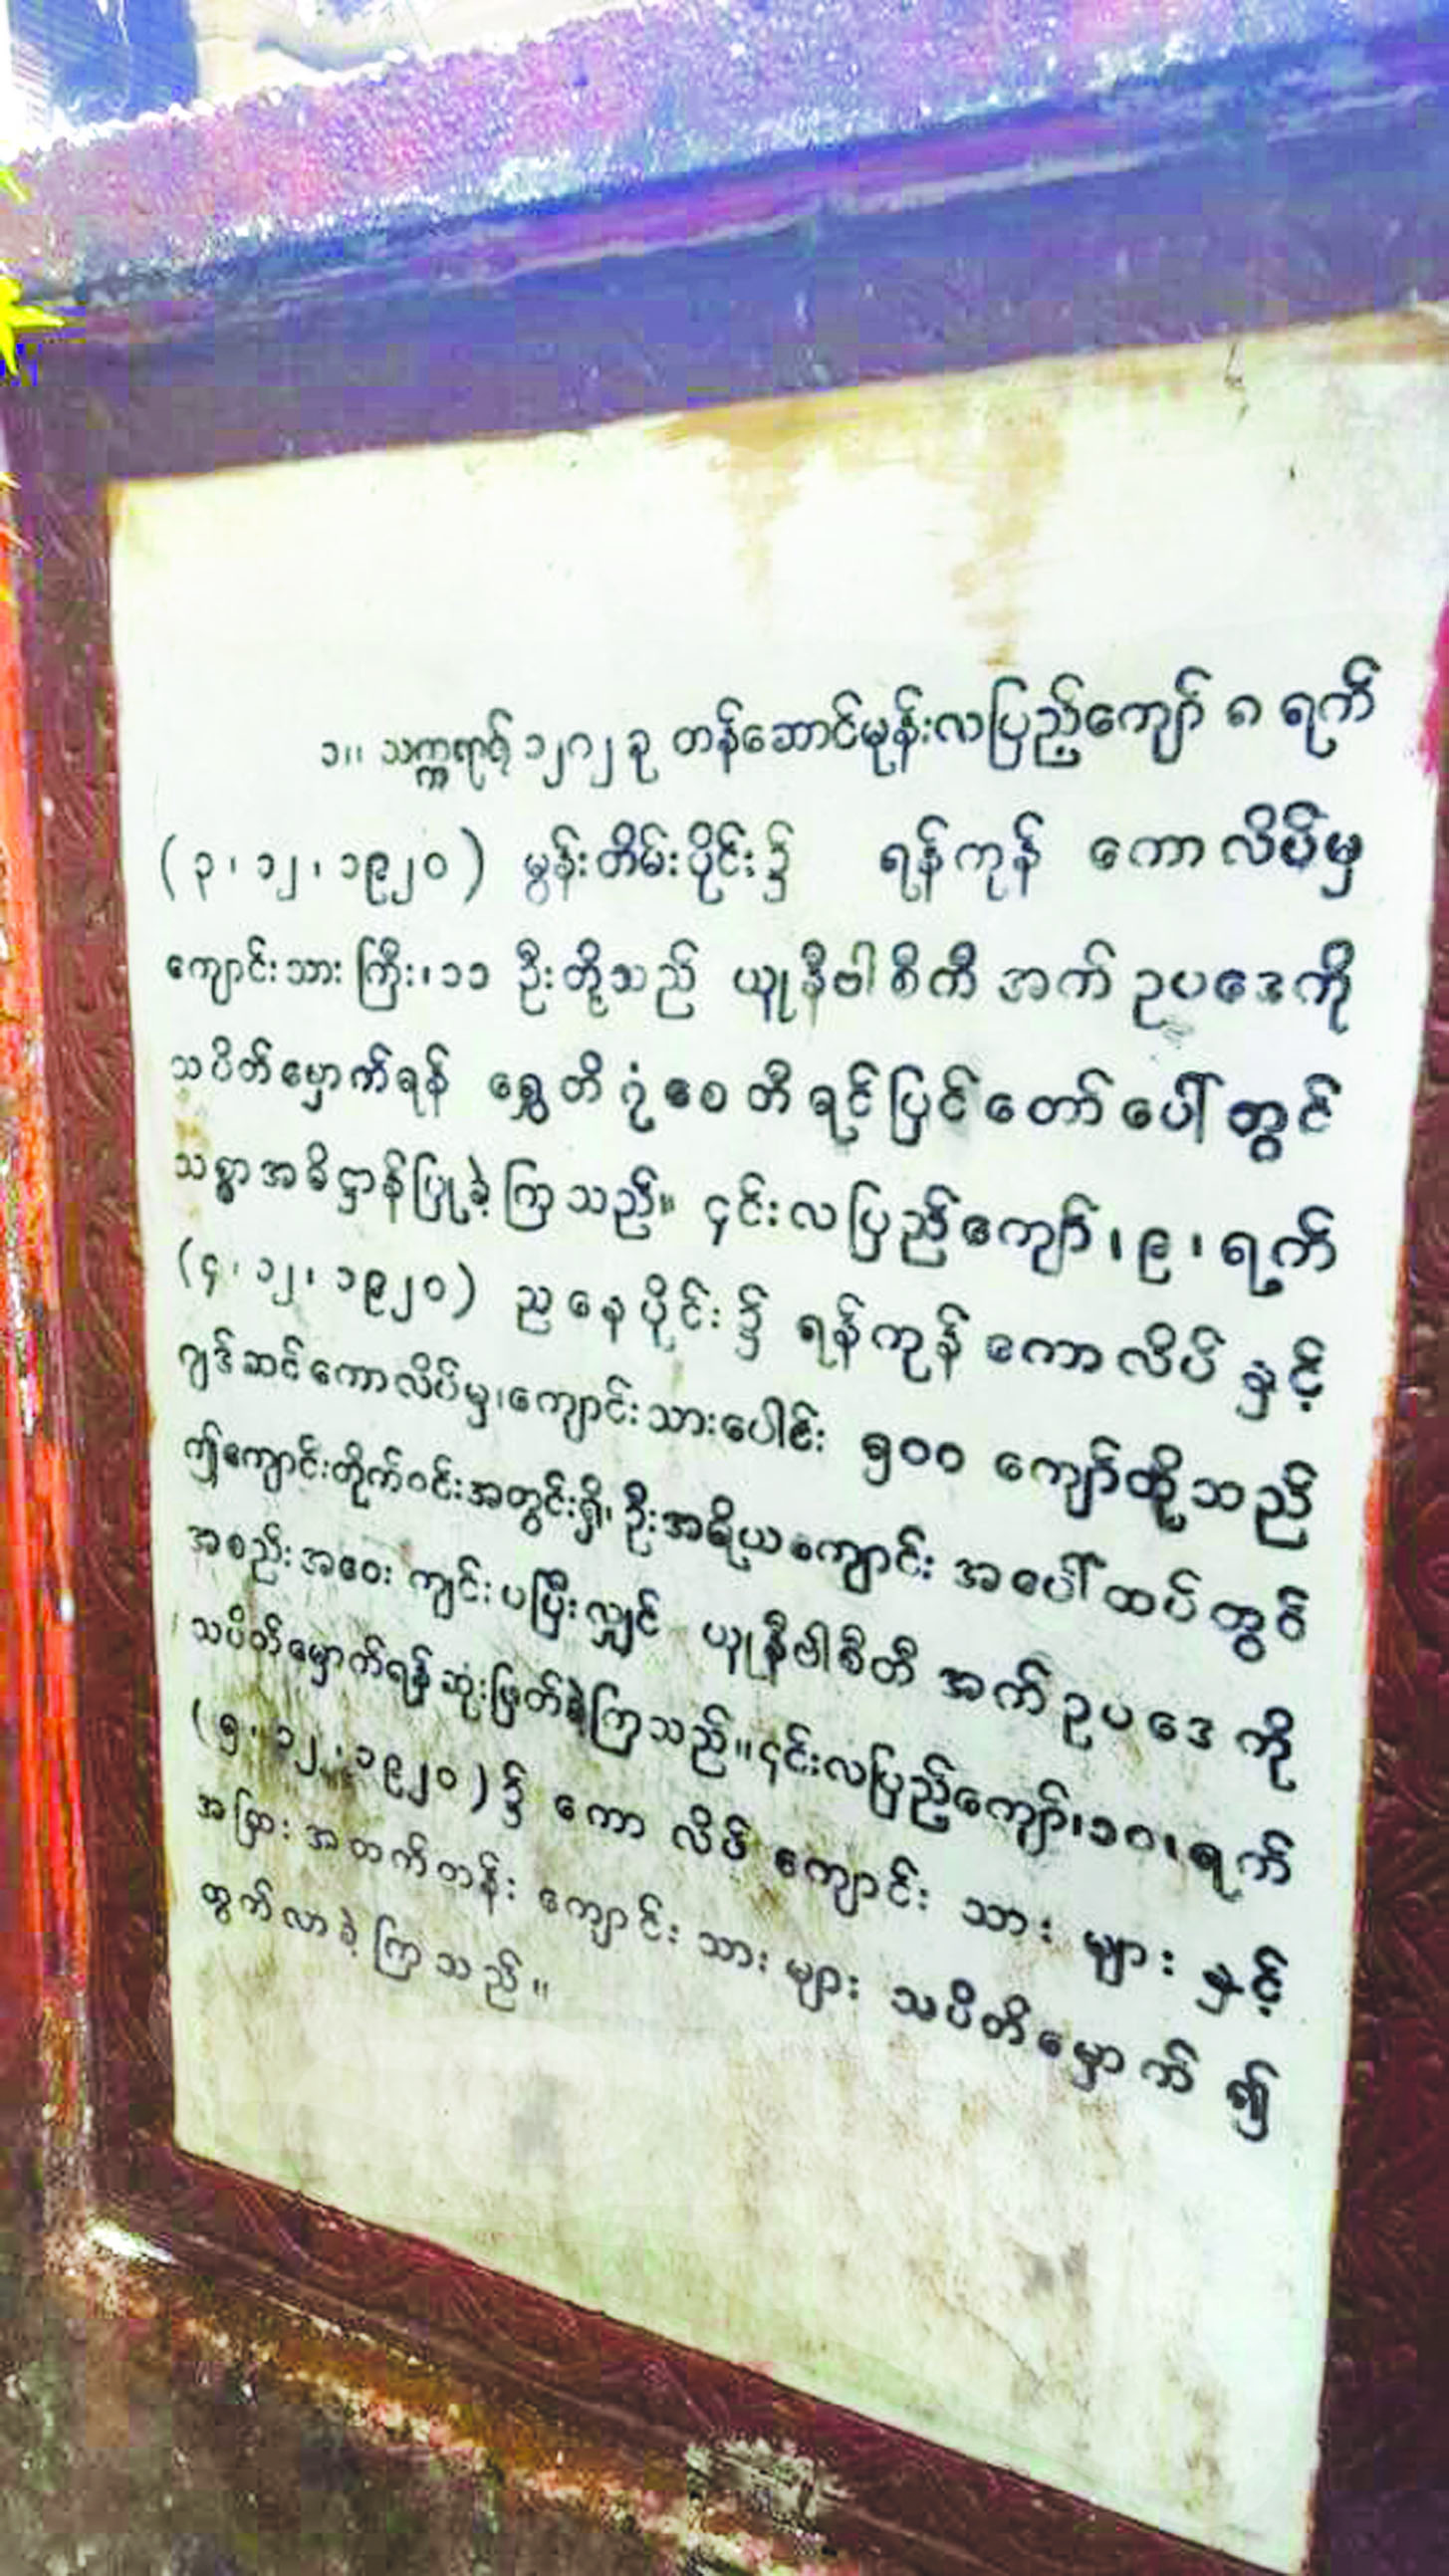 ၁။ သက္ကရာဇ် ၁၂၈၂ ခု တန်ဆောင်မုန်းလပြည့်ကျော် ၈ ရက်
(၃၊ ၁၂၊ ၁၉၂၀) မွန်းတိမ်းပိုင်း၌ ရန်ကုန် ကောလိပ်မှ
ကျောင်းသားကြီး၊ ၁၁ ဦးတို့သည် ယူနီဗါစီတီ အက် ဥပဒေကို
သပိတ်မှောက်ရန် ရွှေတိဂုံစေတီရင်ပြင်တော်ပေါ်တွင်
သစ္စာအဓိဋ္ဌာန်ပြုခဲ့ကြသည်။ ၎င်းလပြည့်ကျော်၊ ၉၊ ရက်
(၄၊ ၁၂၊ ၁၉၂၀) ညနေပိုင်း၌ ရန်ကုန် ကောလိပ် နှင့်
ဂျဒ်ဆင်ကောလိပ်မှ၊ ကျောင်းသားပေါင်း ၅၀၀ ကျော်တို့သည်
ဤကျောင်းတိုက်ဝင်းအတွင်းရှိ၊ ဦးအရိယကျောင်း အပေါ်ထပ်တွင်
အစည်းအဝေး ကျင်းပပြီးလျှင် ယူနီဗါစီတီ အက်ဥပဒေ ကို
သပိတ်မှောက်ရန်ဆုံးဖြတ်ခဲ့ကြသည်။ ၎င်းလပြည့်ကျော်၊ ၁၀၊ ရက်
(၅၊ ၁၂၊ ၁၉၂၀)၌ ကောလိပ် ကျောင်းသားများ နှင့်
အခြား အတက်တန်း ကျောင်းသားများ သပိတ်မှောက် ၍
ထွက်လာခဲ့ကြသည်။